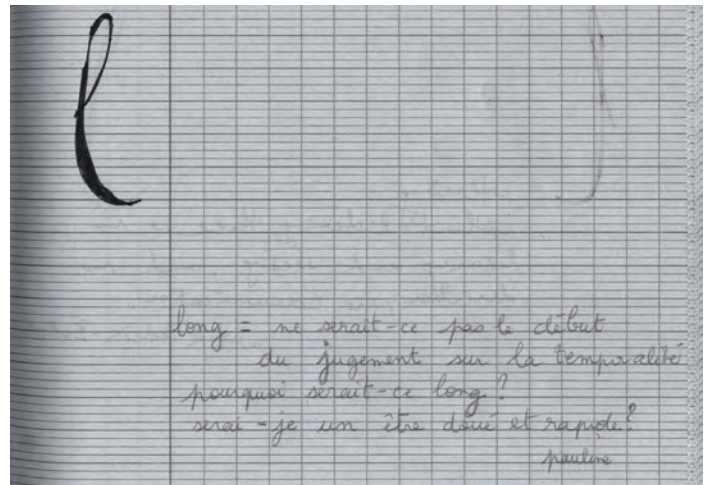 l
long = ne serait-ce pas le début
du jugement sur la temporalité
pourquoi serait-ce long ?
serai-je un être doué et rapide ?
pauline